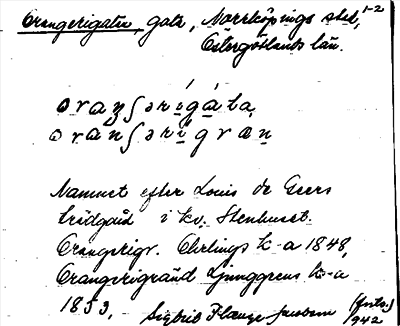 Orangerigatan, gata, Norrköpings stad, 1-2
Östergötlands län.
oraŋʃərigata
oranʃərigræn
Namnet efter Louis de Geers
trädgård i kv. Stenhuset.
Orangerigr. Ehrlings k-a 1848,
Orangerigränd Ljunggrens k-a
1853.
Sigbrit Plænge Jacobson (foto.)
1942